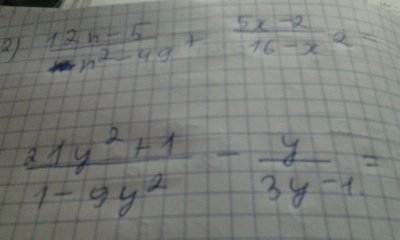 2) (12n-5)/(n²-49) + (5x-2)/(16-x²) =
(21y²+1)/(1-9y²) - y/(3y-1) =